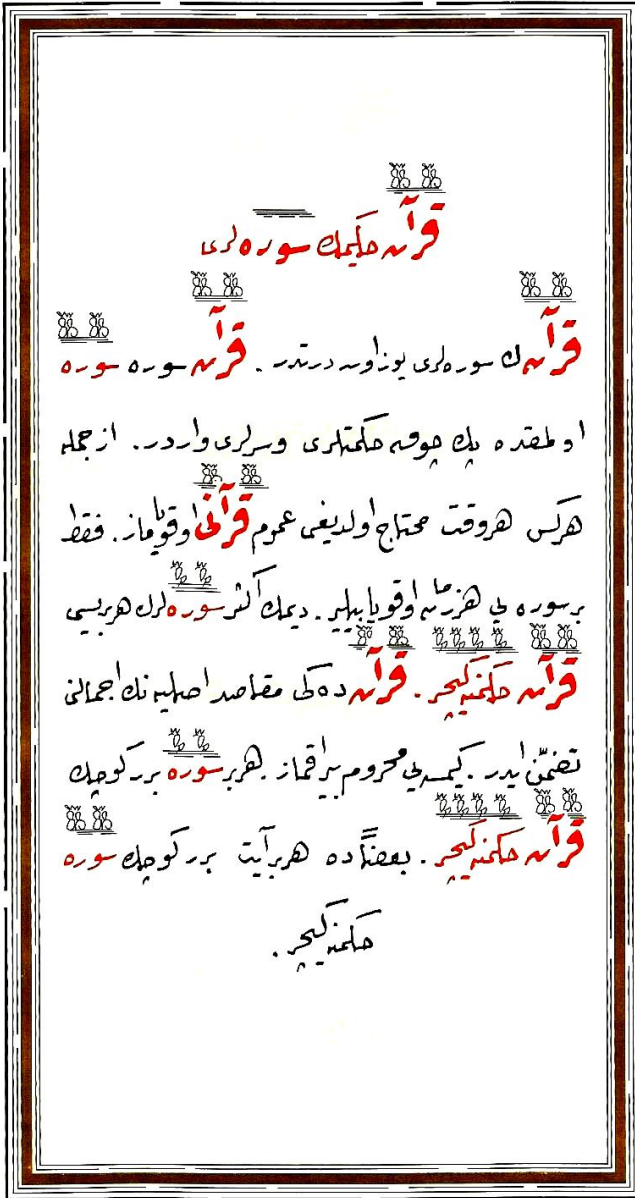 قرآن حكيمك سوره لرى
قرآنك سوره لرى يوز اون درتدر . قرآن سوره سوره
اولمقده پك چوق حكمتلرى وسرلرى واردر . از جمله
هركس هر وقت محتاج اولديغى عموم قرآنى اوقوياماز . فقط
بر سوره يى هر زمان اوقويابيلير . ديمك اكثر سوره لرك هر بريسى
قرآن حكمنه كچر . قرآن ده كى مقاصد اصليه نك اجمالنى
تضمّن ايدر . كيمسه يى محروم بيراقماز . هر بر سوره برر كوچك
قرآن حكمنه كچر . بعضاً ده هر آيت برر كوچك سوره
حكمنه كچر .